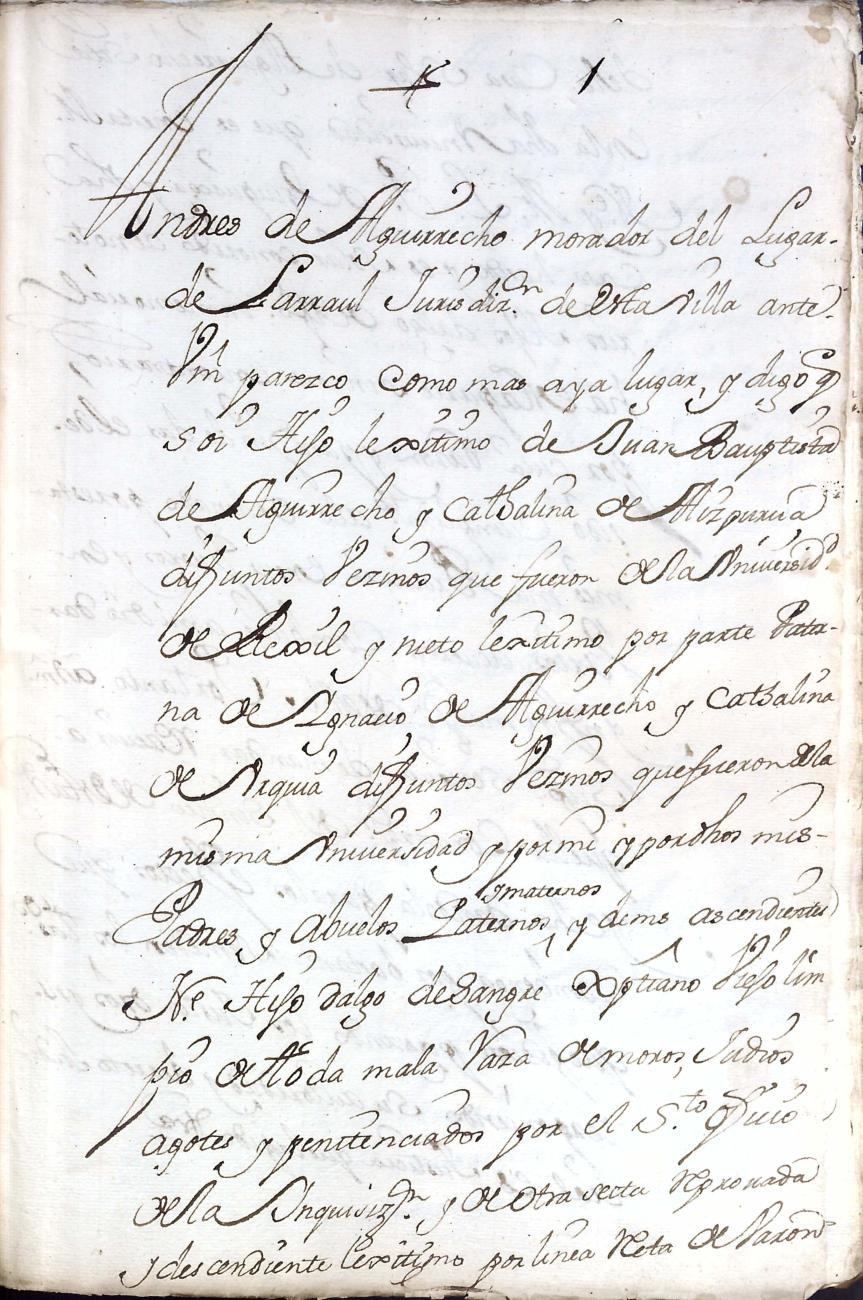 1
Andres de Aguirrecho morador del Lugar-
de Larraul Jurisdizn. de esta Villa ante-
Vm parezco como mas aya lugar, y digo q
soi Hijo lexitimo de Juan Bauptista
de Aguirrecho y Cathalina de Aizpurua
difuntos Vezinos que fueron de la Universidd.
de Rexil y nieto lexitimo por parte Pater-
na de Ignacio de Aguirrecho y Cathalina
de Urquia difuntos Vezinos que fueron de la
misma Universidad y por mi y por dhos mis-
Padres y Abuelos Paternos y maternos, y dems ascendientes
Ne. Hijo dalgo de Sangre Xptiano Viejo lim
pio de toda mala Raza de moros, Judios
agotes y penitenciados por el S.to ofizio
de la Inquisizn. y de otra secta Reprovada
y descendiente lexitimo por linea Reta de Varon